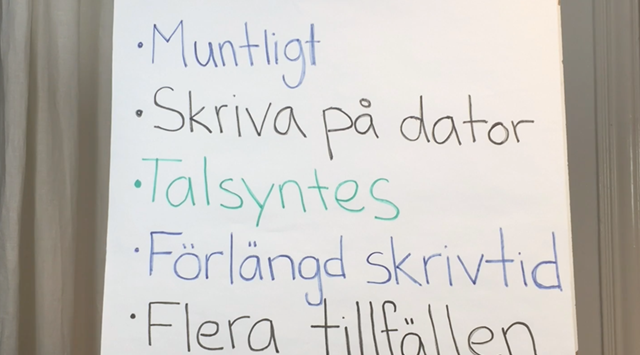 · Muntligt
· Skriva på dator
· Talsyntes
· Förlängd skrivtid
· Flera tillfällen